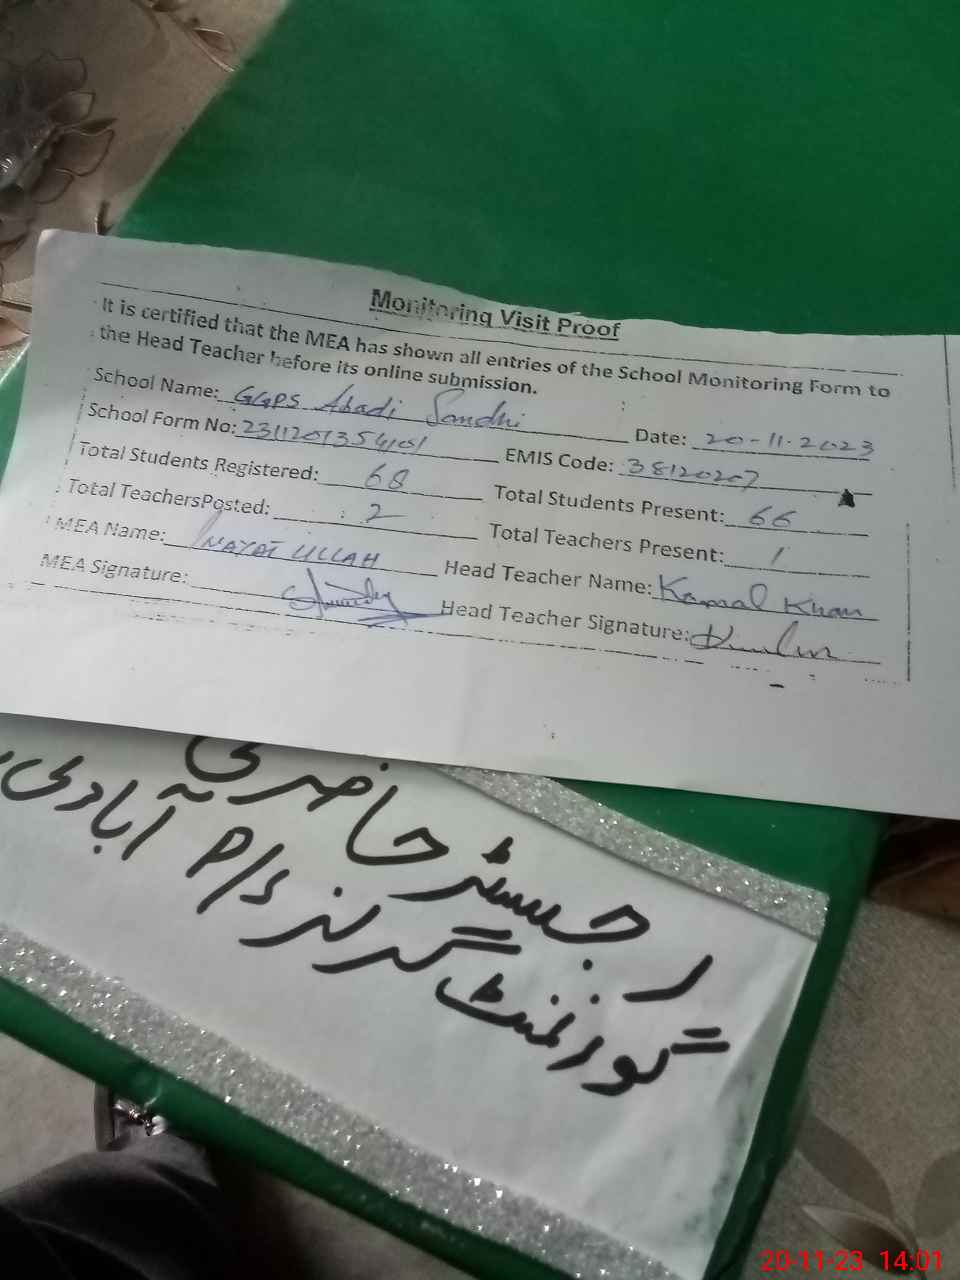 Monitoring Visit Proof
It is certified that the MEA has shown all entries of the School Monitoring Form to
the Head Teacher before its online submission.
School Name: GGPS Abadi Sandhi Date: 20-11-2023
School Form No: 2311201354101 EMIS Code: 38120207
Total Students Registered: 68 Total Students Present: 66
Total TeachersPosted: 2 Total Teachers Present: 1
MEA Name: INAYAT ULLAH Head Teacher Name: Kamal Khan
MEA Signature: Head Teacher Signature:
رجسٹر حاضری
گورنمنٹ گرلز P/S آبادی
20-11-23 14:01